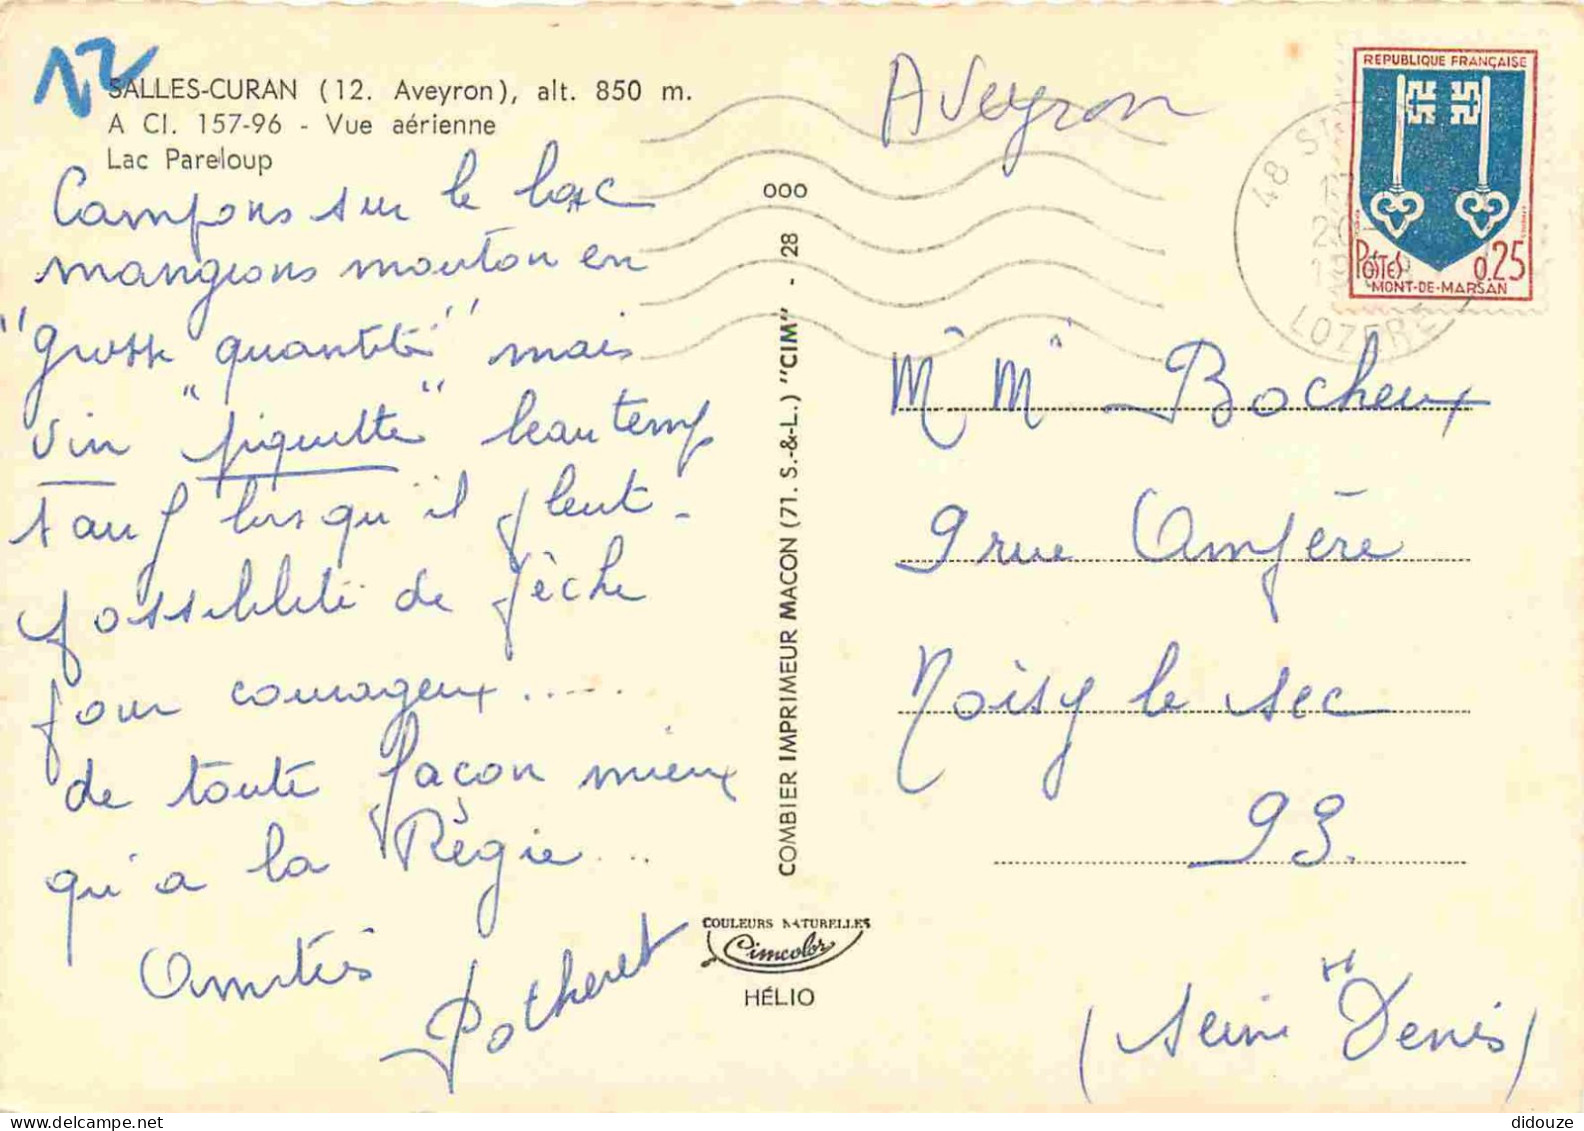 12
SALLES-CURAN (12. Aveyron), alt. 850 m.
A CI. 157-96 - Vue aérienne
Lac Pareloup
Campons sur le lac
mangeons mouton en
"grosse quantité" mais
vin "piquette" beau temps
sauf lorsqu'il pleut -
possibilité de pêche
pour courageux......
de toute façon mieux
qu'a la Régie...
Amitiés
Pocheret
OOO
COMBIER IMPRIMEUR MACON (71. S.-&-L.) "CIM" - 28
COULEURS NATURELLES
Cimcolor
HÉLIO
Aveyron
48
LOZERE
REPUBLIQUE FRANÇAISE
POSTES 0,25
MONT-DE-MARSAN
Mr Me Bocheux
9 rue Ampère
Noisy le sec
93.
(Seine St Denis)
didouze